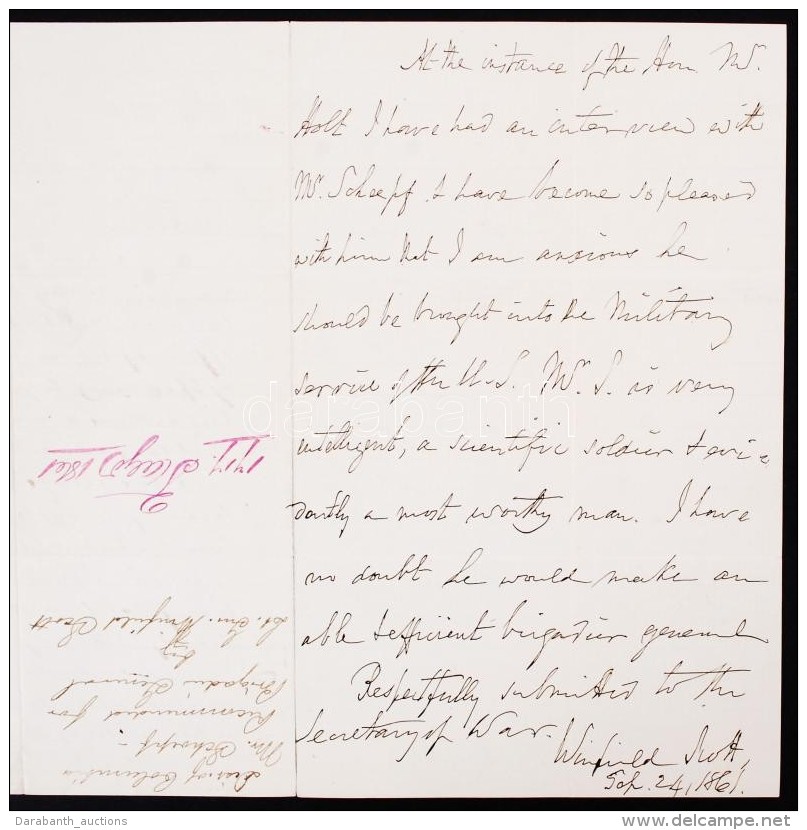 At the instance of the Hon. Mr.
Holt I have had an interview with
Mr. Schoepf & have become so pleased
with him that I am anxious he
should be brought into the Military
service of the U.S. Mr. S. is very
intelligent, a scientific soldier & evi-
dently a most worthy man. I have
no doubt he would make an
able & efficient brigadier general
Respectfully submitted to the
Secretary of War.
Winfield Scott,
Sep. 24, 1861.
Dis. of Columbia
Mr. Schoepf -
Recommended for
Brigadier General
by
Lt. Gen. Winfield Scott
1861
darabanth
Darabanth_auctions
delcampe.net